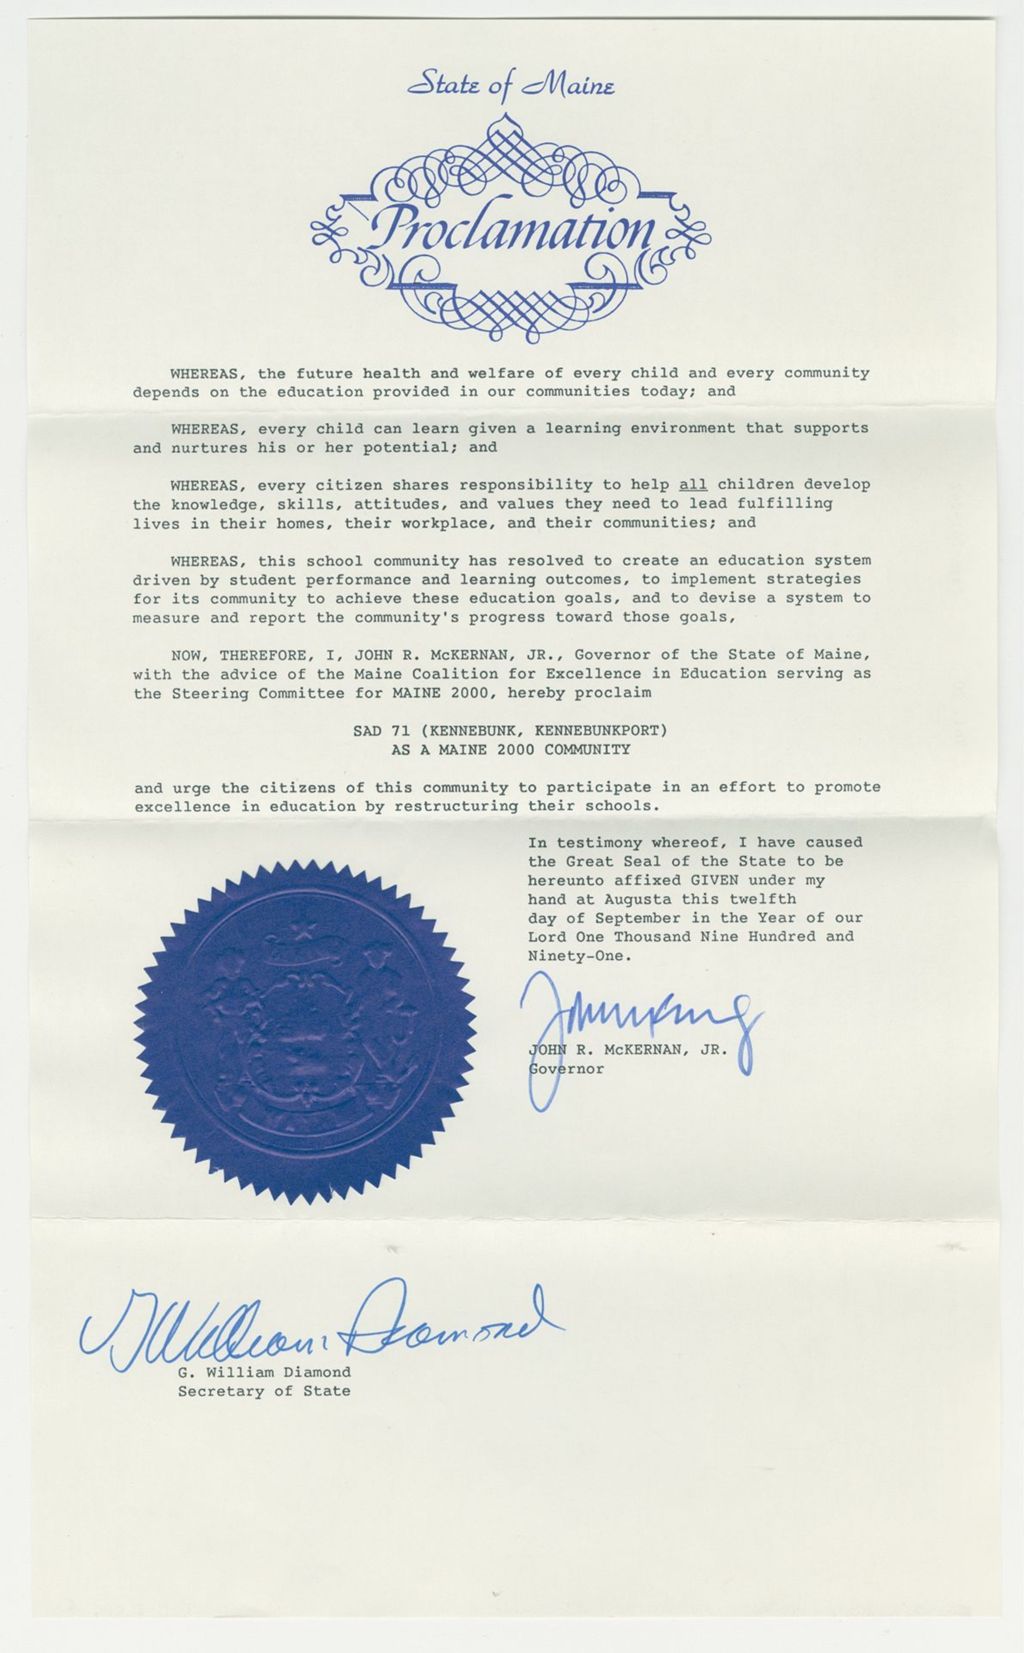 State of Maine
Proclamation
WHEREAS, the future health and welfare of every child and every community
depends on the education provided in our communities today; and
WHEREAS, every child can learn given a learning environment that supports
and nurtures his or her potential; and
WHEREAS, every citizen shares responsibility to help all children develop
the knowledge, skills, attitudes, and values they need to lead fulfilling
lives in their homes, their workplace, and their communities; and
WHEREAS, this school community has resolved to create an education system
driven by student performance and learning outcomes, to implement strategies
for its community to achieve these education goals, and to devise a system to
measure and report the community's progress toward those goals,
NOW, THEREFORE, I, JOHN R. McKERNAN, JR., Governor of the State of Maine,
with the advice of the Maine Coalition for Excellence in Education serving as
the Steering Committee for MAINE 2000, hereby proclaim
SAD 71 (KENNEBUNK, KENNEBUNKPORT)
AS A MAINE 2000 COMMUNITY
and urge the citizens of this community to participate in an effort to promote
excellence in education by restructuring their schools.
In testimony whereof, I have caused
the Great Seal of the State to be
hereunto affixed GIVEN under my
hand at Augusta this twelfth
day of September in the Year of our
Lord One Thousand Nine Hundred and
Ninety-One.
JOHN R. McKERNAN, JR.
Governor
G William Diamond
G. William Diamond
Secretary of State